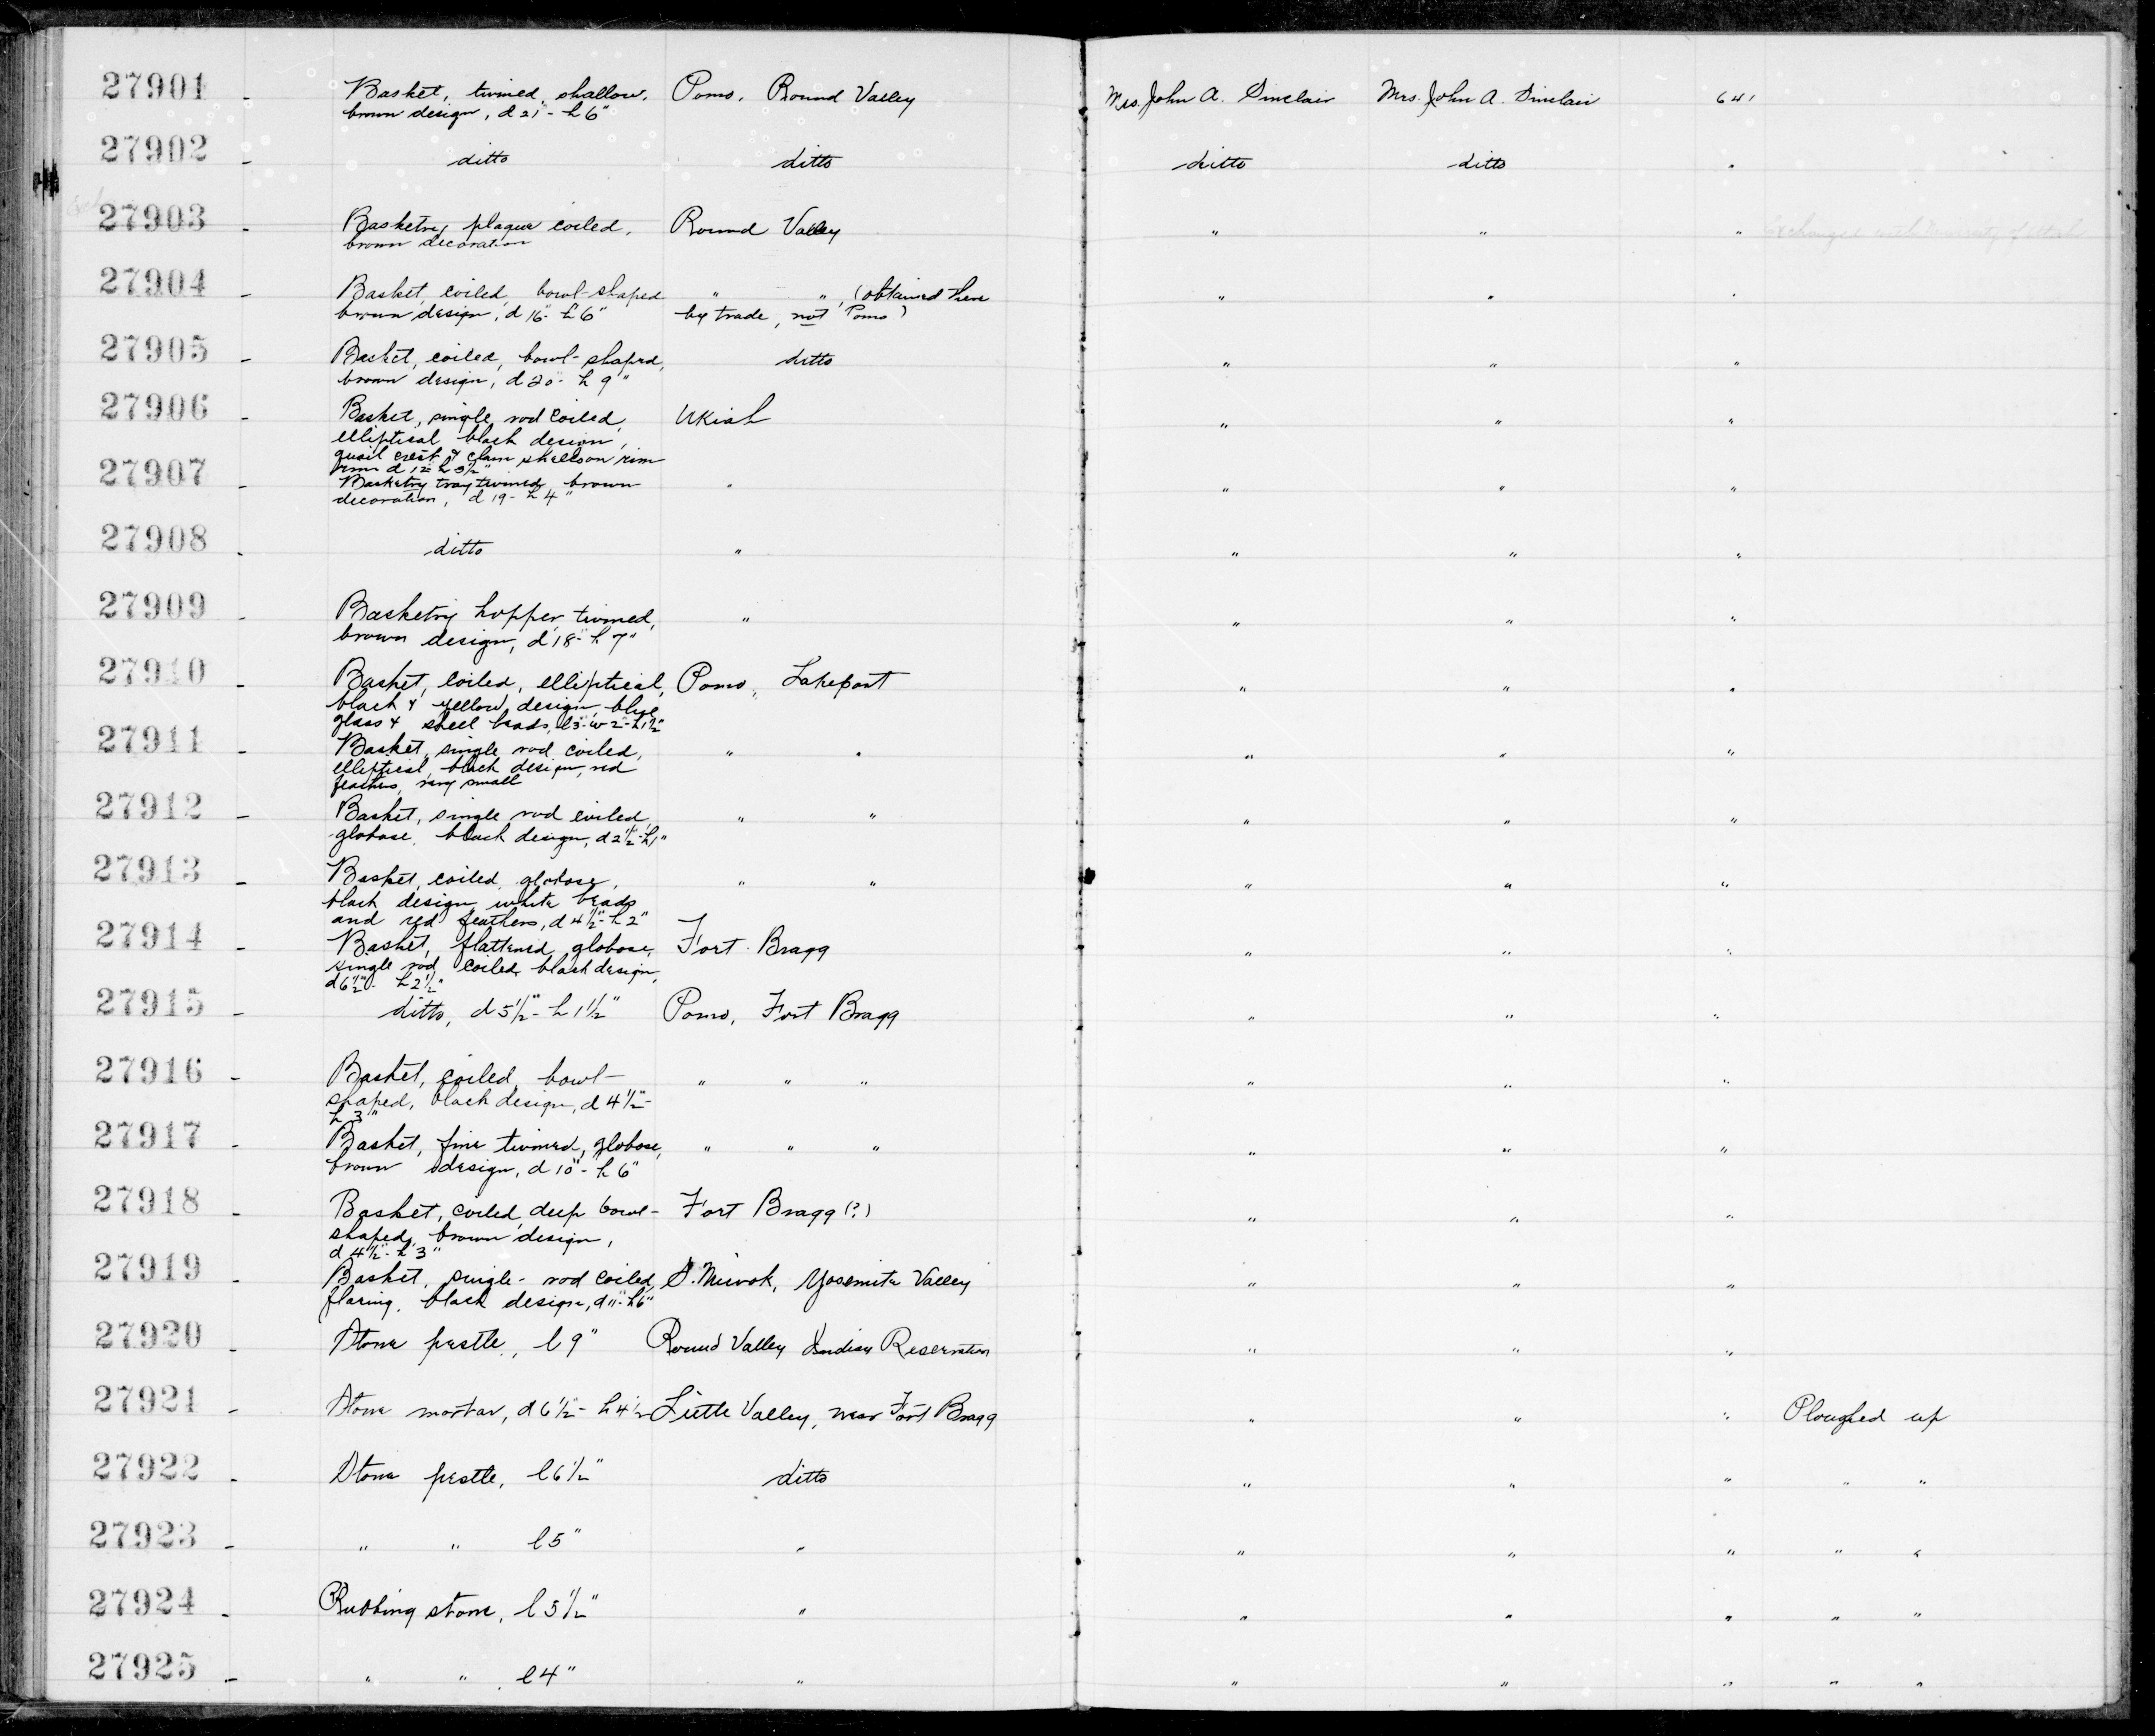 27901 - Basket, twined, shallow, Pomo, Round Valley Mrs. John A. Sinclair Mrs. John A. Sinclair 641
brown design, d 21" - h 6"
27902 - ditto ditto ditto ditto "
27903 - Basketry plaque coiled, Round Valley " " " Exchanged with University of Utah
brown decoration
27904 - Basket, coiled, bowl-shaped " ", (obtained there " " "
brown design, d 16" - h 6" by trade, not Pomo)
27905 - Basket, coiled, bowl-shaped, ditto " " "
brown design, d 20" - h 9"
27906 - Basket, single rod coiled, Ukiah " " "
elliptical black design,
quail crest & clam shells on rim
rim d 12" h 3½"
27907 - Basketry tray twined, brown " " " "
decoration, d 19 - h 4"
27908 - ditto " " " "
27909 - Basketry hopper, twined, " " " "
brown design, d 18" - h 7"
27910 - Basket, coiled, elliptical, Pomo, Lakeport " " "
black & yellow design, blue
glass & steel beads, l 3" - w 2" - h 1½"
27911 - Basket, single rod coiled, " " " " "
elliptical, black design, red
feathers, very small
27912 - Basket, single rod coiled, " " " " "
globose, black design, d 2½" - h 1"
27913 - Basket, coiled, globose, " " " " "
black design, white beads
and red feathers, d 4½" - h 2"
27914 - Basket, flattened globose, Fort Bragg " " "
single rod coiled, black design,
d 6½" - h 2½"
27915 - ditto, d 5½" - h 1½" Pomo, Fort Bragg " " "
27916 - Basket, coiled, bowl- " " " " " "
shaped, black design, d 4½" -
h 3"
27917 - Basket, fine twined, globose, " " " " " "
brown design, d 10" - h 6"
27918 - Basket, coiled, deep bowl- Fort Bragg (?) " " "
shaped, brown design,
d 4½" - h 3"
27919 - Basket, single-rod coiled, S. Miwok, Yosemite Valley " " "
flaring, black design, d 11" - h 6"
27920 - Stone pestle, l 9" Round Valley Indian Reservation " " "
27921 - Stone mortar, d 6½" - h 4½ Little Valley, near Fort Bragg " " " Ploughed up
27922 - Stone pestle, l 6½" ditto " " " " "
27923 - " " l 5" " " " " " "
27924 - Rubbing stone, l 5½" " " " " " "
27925 - " " l 4" " " " " " "